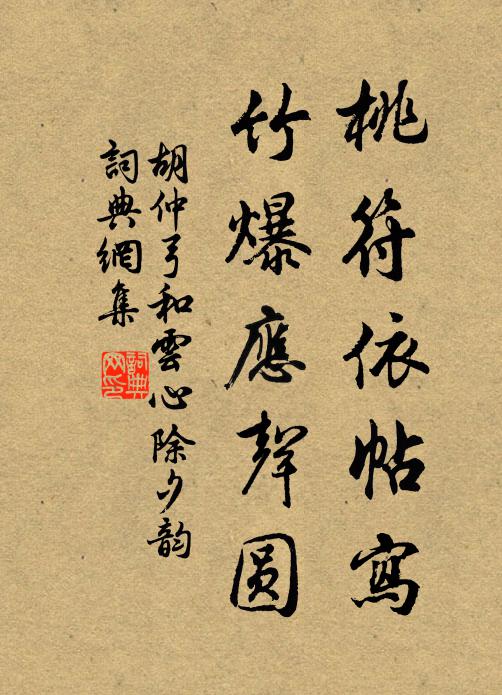 桃符依帖寫
竹爆應聲圓
胡仲弓和雲心除夕韵
詞典網集
詞典网印